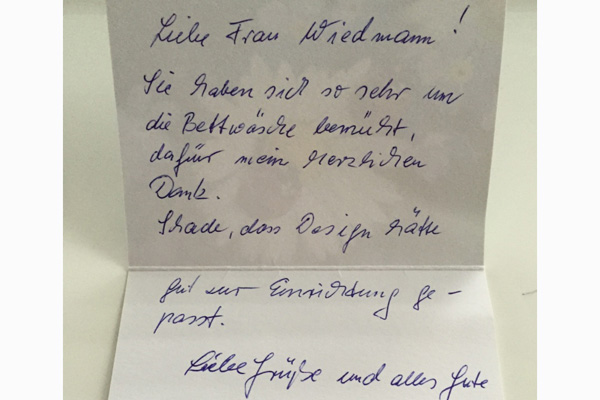 Liebe Frau Wiedmann!
Sie haben sich so sehr um
die Bettwäsche bemüht,
dafür mein herzlichen
Dank.
Schade, dass Design hätte
gut zur Einrichtung ge-
passt.
Liebe Grüße und alles Gute